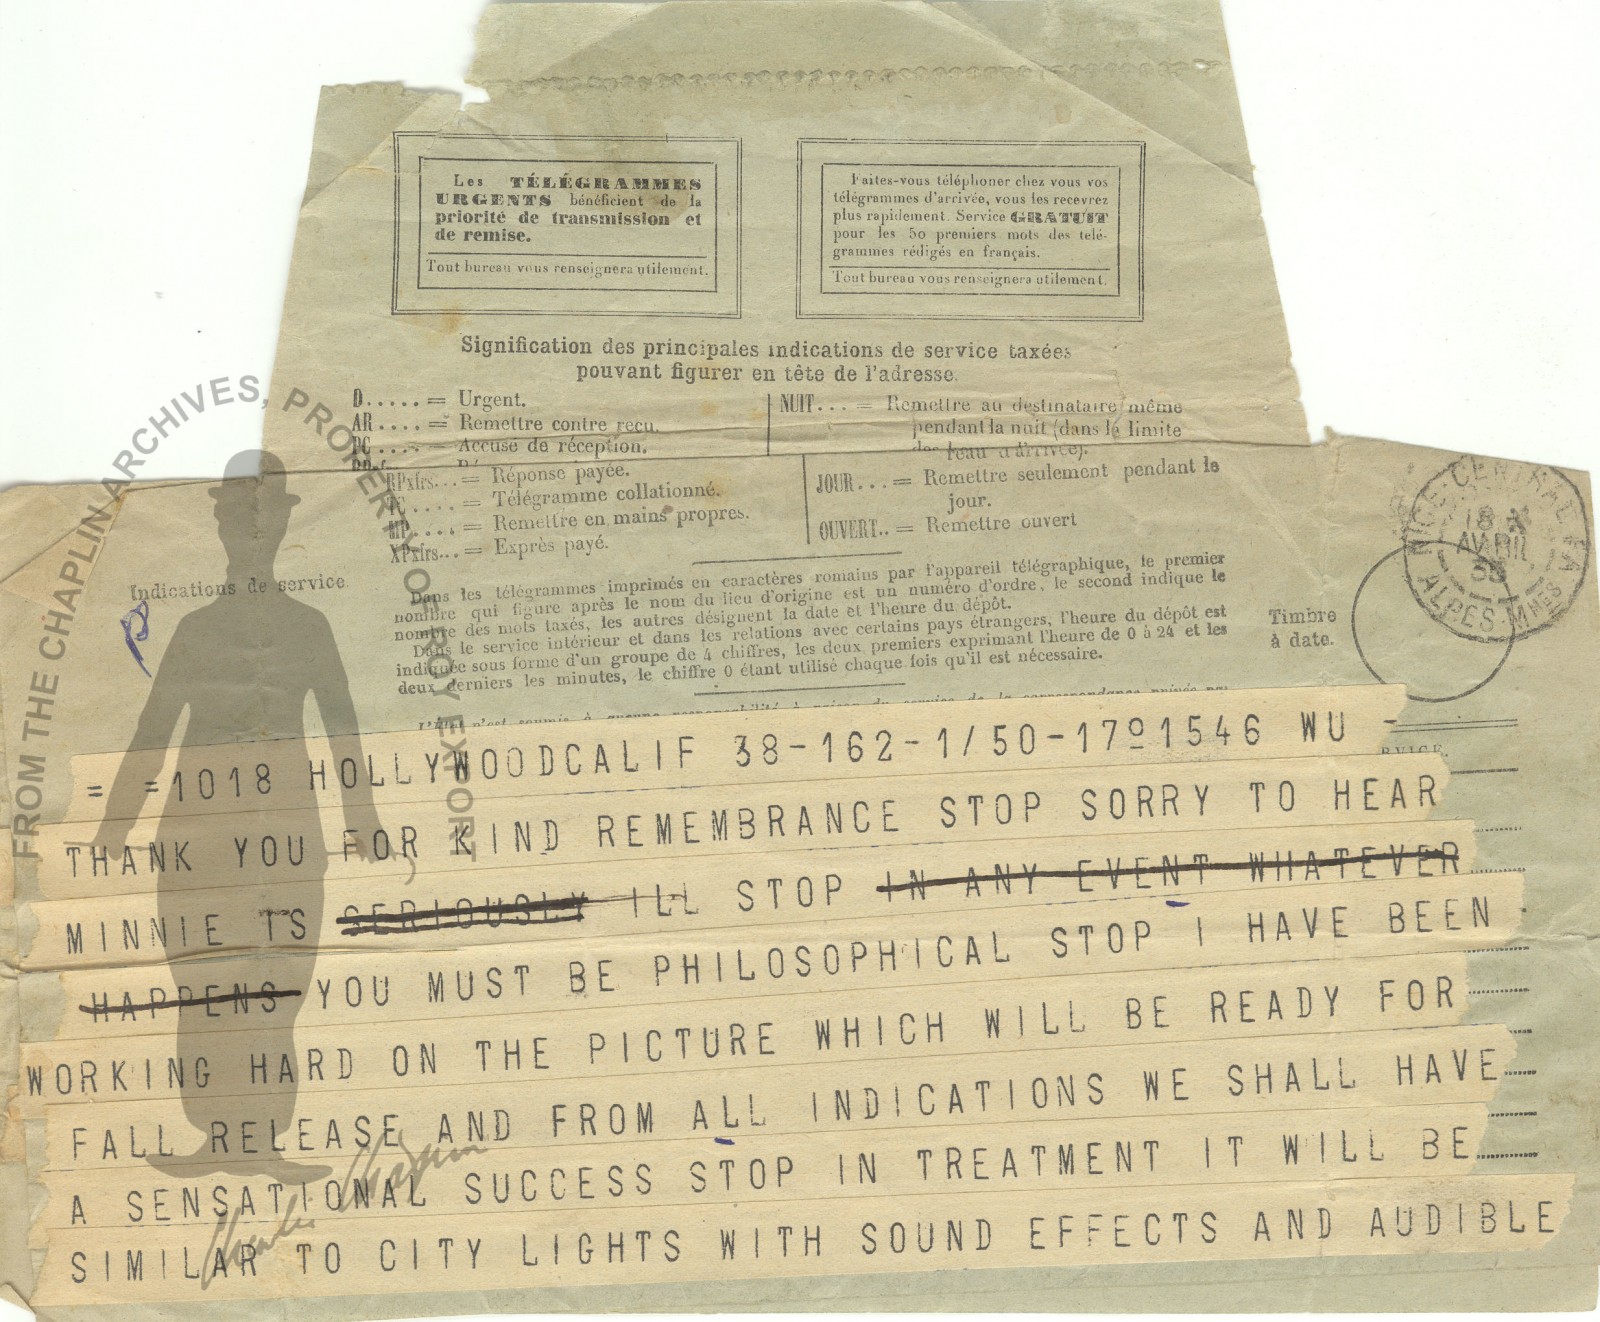 Les TÉLÉGRAMMES
URGENTS bénéficient de la
priorité de transmission et
de remise.
Tout bureau vous renseignera utilement.
Faites-vous téléphoner chez vous vos
télégrammes d'arrivée, vous les recevrez
plus rapidement. Service GRATUIT
pour les 50 premiers mots des télé-
grammes rédigés en français.
Tout bureau vous renseignera utilement.
Signification des principales indications de service taxées
pouvant figurer en tête de l'adresse.
D..... = Urgent.
AR .... = Remettre contre reçu.
PC..... = Accusé de réception.
RPxfrs... = Réponse payée.
TC .... = Télégramme collationné.
MP..... = Remettre en mains propres.
XPxfrs... = Exprès payé.
NUIT... = Remettre au destinataire même
pendant la nuit (dans la limite
d'arrivée).
JOUR... = Remettre seulement pendant le
jour.
OUVERT.. = Remettre ouvert
Indications de service.
Dans les télégrammes imprimés en caractères romains par l'appareil télégraphique, le premier
nombre qui figure après le nom du lieu d'origine est un numéro d'ordre, le second indique le
nombre des mots taxés, les autres désignent la date et l'heure du dépôt.
Dans le service intérieur et dans les relations avec certains pays étrangers, l'heure du dépôt est
indiquée sous forme d'un groupe de 4 chiffres, les deux premiers exprimant l'heure de 0 à 24 et les
deux derniers les minutes, le chiffre 0 étant utilisé chaque fois qu'il est nécessaire.
Timbre
à date.
NICE-CENTRAL
18
AVRIL
35
ALPES-MMES
= =1018 HOLLYWOODCALIF 38-162-1/50-17º1546 WU -
THANK YOU FOR KIND REMEMBRANCE STOP SORRY TO HEAR
MINNIE IS SERIOUSLY ILL STOP IN ANY EVENT WHATEVER
HAPPENS YOU MUST BE PHILOSOPHICAL STOP I HAVE BEEN
WORKING HARD ON THE PICTURE WHICH WILL BE READY FOR
FALL RELEASE AND FROM ALL INDICATIONS WE SHALL HAVE
A SENSATIONAL SUCCESS STOP IN TREATMENT IT WILL BE
SIMILAR TO CITY LIGHTS WITH SOUND EFFECTS AND AUDIBLE
FROM THE CHAPLIN ARCHIVES, PROPERTY OF ROY EXPORT
Charlie Chaplin